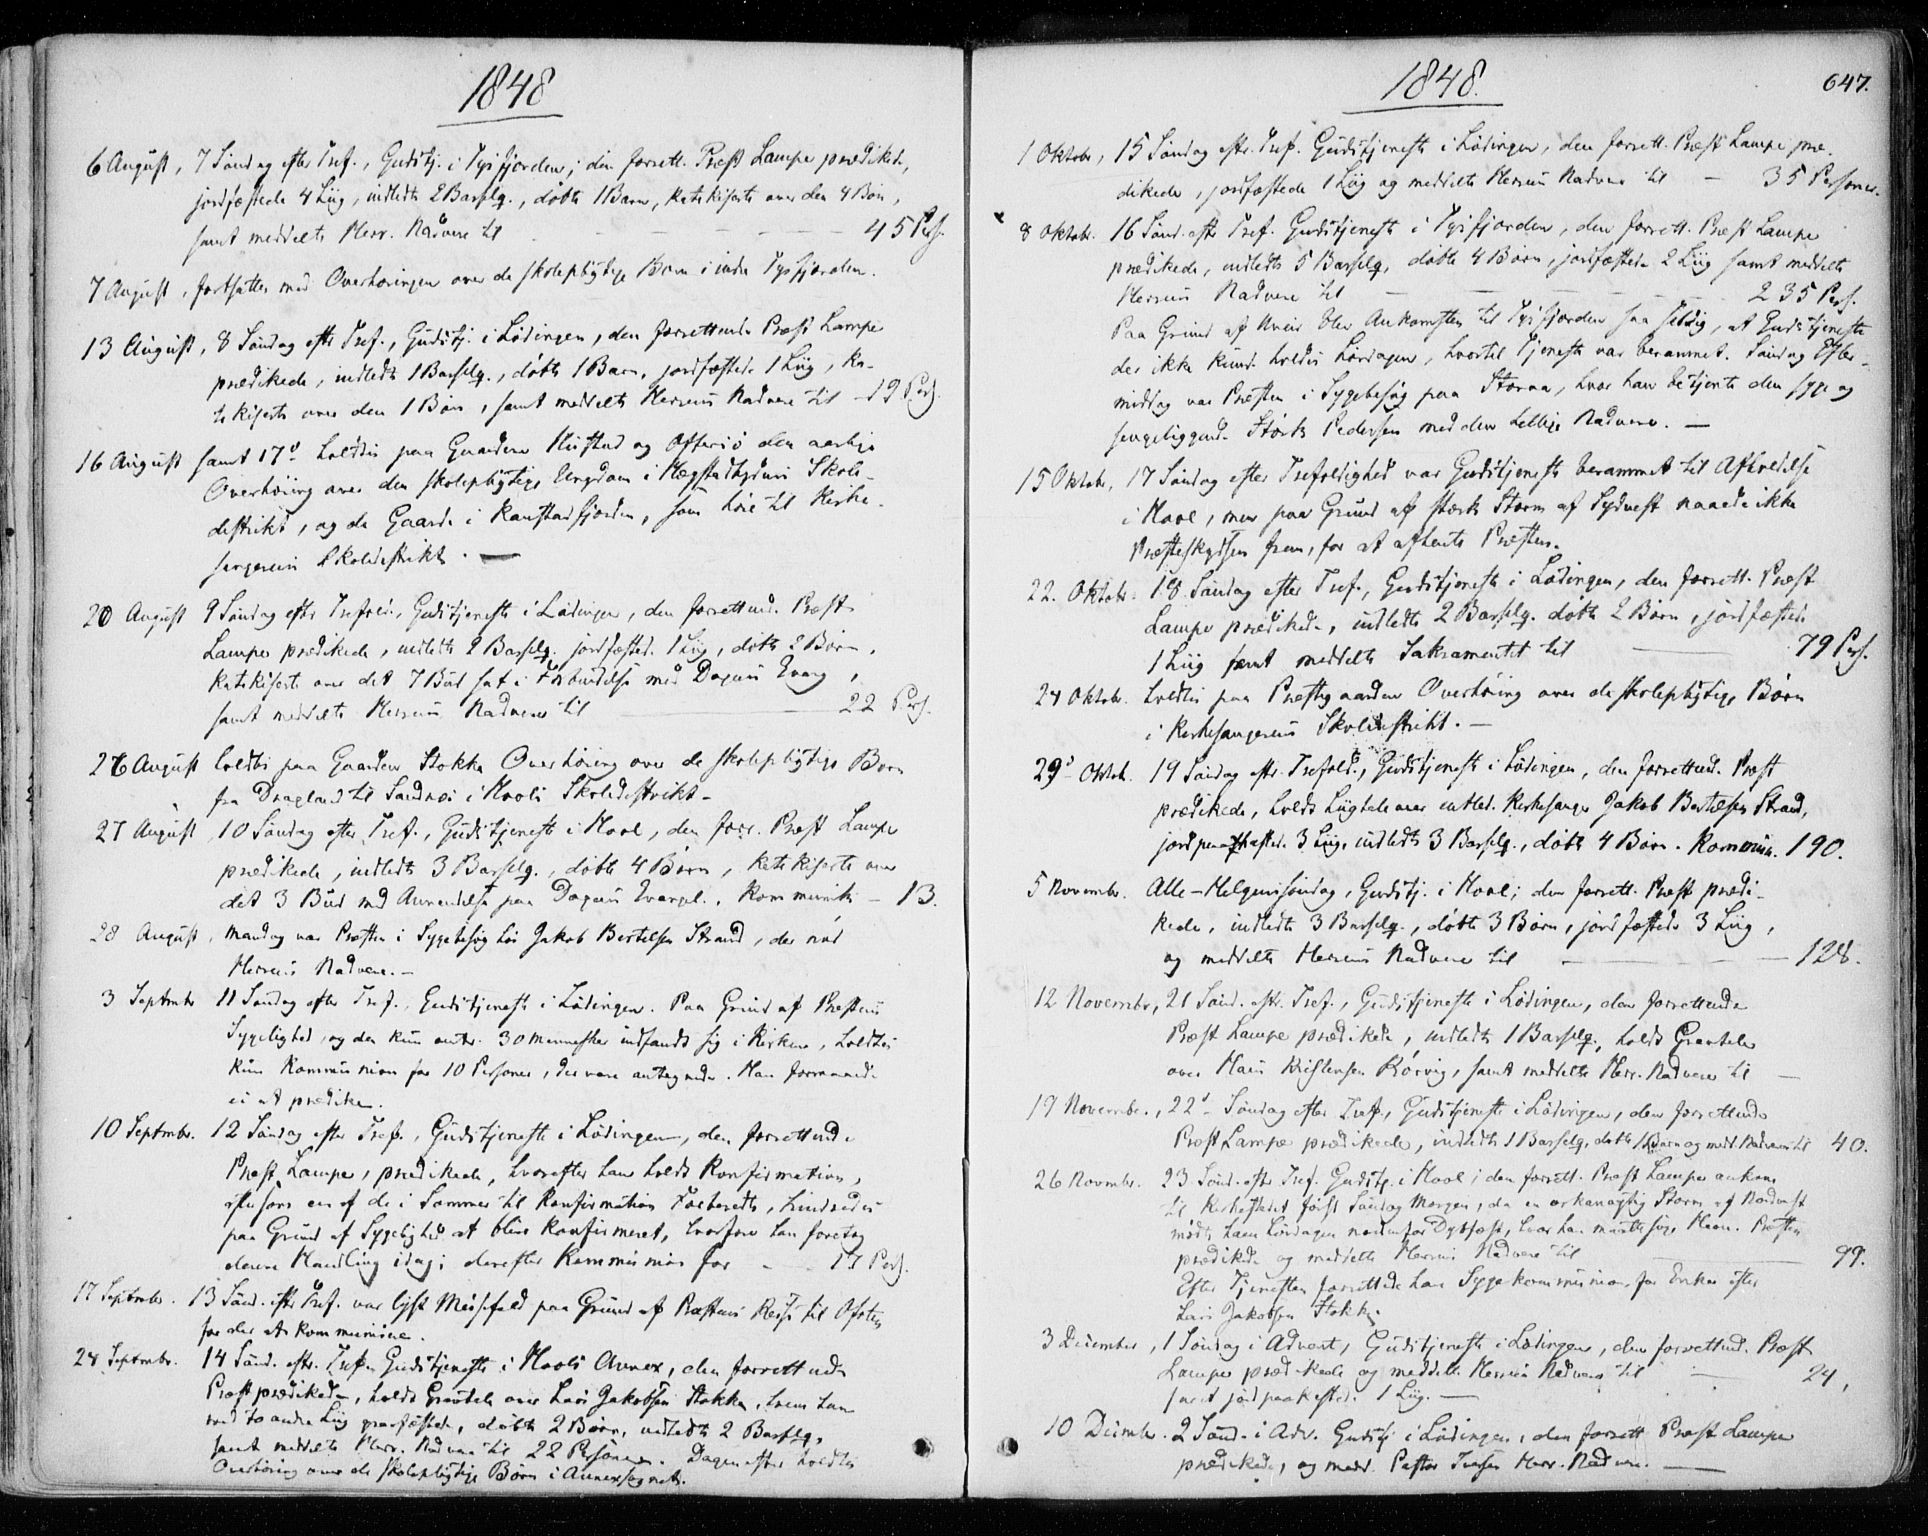 1848
6 August, 7 Søndag efter Tref., Gudstj. i Tysfjorden; den forrett. Præst Lampe prædikede,
jordfæstede 4 Liig, indledte 2 Barselq., døbte 1 Barn, katekiserte over den 4 Bøn,
samt meddelte Herr. Nadvere til 45 Pers.
7 August, fortsattes med Overhøringen over de skolepligtige Børn i indre Tysfjorden.
13 August, 8 Søndag efter Tref., Gudstj. i Lødingen, den forrettende Præst Lampe
prædikede, indledte 1 Barselq., døbte 1 Barn, jordfæstede 1 Liig, ka-
tekiserte over den 1 Bøn, samt meddelte Herrens Nadvere til 19 Pers.
16 August samt 17d holdtes paa Gaardene Hustad og Offersø den aarlige
Overhøring over den skolepligtige Ungdom i Hægstadbydens Skole-
distrikt, og de Gaarde i Kanstadfjorden, som høre til Kirke-
sangerens Skoledistrikt. —
20 August 9 Søndag efter Trefold., Gudstjeneste i Lødingen, den forrettend. Præst
Lampe prædikede, indledte 2 Barselq. jordfæsted. 1 Liig, døbte 2 Børn,
katekiserte over det 7 Bud sat i Forbindelse med Dagens Evang.,
samt meddelte Herrens Nadvere til 22 Pers.
26 August holdtes paa Gaarden Stokke Overhøring over de skolepligtige Børn
fra Dragland til Sandnes i Hools Skoledistrikt.
27 August, 10 Søndag efter Tref., Gudstjeneste i Hool, den forr. Præst Lampe
prædikede, indledte 3 Barselq., døbte 4 Børn, katekiserte over
det 3 Bud med Anvendelse paa Dagens Evangel., kommunik. – 13.
28 August, Mandag var Præsten i Sygebesøg hos Jakob Bertelsen Strand, der nød
Herrens Nadvere. —
3 Septmbr 11 Søndag efter Tref., Gudstjeneste i Lødingen. Paa Grund af Præstens
Sygelighed, og da kun omtr. 30 Mennesker indfandt sig i Kirken, holdtes
kun Kommunion for 10 Personer, der vare antegnede. Han formaaede
ei at prædike.
10 Septmbr. 12 Søndag efter Tref., Gudstjeneste i Lødingen, den forrettende
Præst Lampe, prædikede, hvorefter han holdt Konfirmation,
eftersom en af de i Sommer til Konfirmation Forberedte, hindredes
paa Grund af Sygelighed at blive konfirmeret, hvorfor han foretog
denne Handling idag; derefter Kommunion for 17 Pers.
17 Septmbr. 13 Sønd. efter Tref. var lyst Messefald paa Grund af Præstens Reise til Ofoten
for der at kommunicere.
24 Septmbr. 14 Sønd. eftr. Tref. Gudstjeneste i Hools Annex, den forrettende
Præst prædikede, holdt Gravtale over Lars Jakobsen Stokke, hvem han
med to andre Liig jordfæstede, døbte 2 Børn, indledte 2 Barselq.,
samt meddelte Herr. Nadvere til 22 Personer. Dagen efter holdtes
Overhøring over de skolepligtige Børn i Annexsognet.
1848. 647.
1 Oktobr, 15 Søndag eftr. Tref. Gudstjeneste i Lødingen, den forrett. Præst Lampe præ-
dikede, jordfæstede 1 Liig og meddelte Herrens Nadvere til – 35 Personer.
8 Oktobr. 16 Sønd. eftr Tref. Gudstjeneste i Tysfjorden, den forrett. Præst Lampe
prædikede, indledte 5 Barselq, døbte 4 Børn, jordfæstede 2 Liig samt meddelte
Herrens Nadvere til 235 Pers.
Paa Grund af Uveir blev Ankomsten til Tysfjorden saa sildig, at Gudstjeneste
der ikke kunde holdes Lørdagen, hvortil Tjeneste var berammet. Søndag Efter-
middag var Præsten i Sygebesøg paa Storaa, hvor han betjente den syge og
sengeliggende Størk Pedersen med den hellige Nadvere. —
15 Oktobr, 17 Søndag efter Trefoldighed var Gudstjeneste berammet til Afholdelse
i Hool, men paa Grund af stærk Storm af Sydvest naaede ikke
Præsteskydsen frem, for at afhente Præsten.
22. Oktobr. 18 Søndag efter Tref., Gudstjeneste i Lødingen, den forrett. Præst
Lampe prædikede, indledte 2 Barselq. døbte 2 Børn, jordfæstede
1 Liig samt meddelte Sakramentet til 79 Pers.
24 Oktobr. holdtes paa Præstegaarden Overhøring over de skolepligtige Børn
i Kirkesangerens Skoledistrikt. —
29d Oktob. 19 Søndag eftr. Trefold., Gudstjeneste i Lødingen, den forrettend. Præst
prædikede, holdt Liigtale over entled. Kirkesanger Jakob Bertelsen Strand,
jordpaakasted. 3 Liig, indledte 3 Barselq., døbte 4 Børn. Kommun. 190.
5 Novembr. Alle-Helgenssøndag, Gudstj. i Hool; den forrett. Præst prædi-
kede, indledte 3 Barselq., døbte 3 Børn, jordfæstede 3 Liig,
og meddelte Herrens Nadvere til 128.
12 Novembr, 21 Sønd. eftr. Tref., Gudstjeneste i Lødingen, den forrettende
Præst Lampe prædikede, indledte 1 Barselq., holdt Gravtale
over Hans Kristensen Rørvig, samt meddelte Herr. Nadvere til —
19 Novembr., 22d Søndag efter Tref., Gudstjeneste i Lødingen, den forrettende
Præst Lampe prædikede, indledte 1 Barselq, døbte 1 Barn og medd. Nadveren til 40.
26 Novmbr. 23 Sønd. eftr Tref. Gudstj. i Hool; den forrett. Præst Lampe ankom
til Kirkestedet først Søndag Morgen, da en orkanagtig Storm af Nordvest
mødte ham Lørdagen nordenfor, hvor han maatte søge Havn. Præsten
prædikede og meddelte Herrens Nadvere til 99.
Efter Tjenesten forrettede han Sygekommunion for Enken efter
Lars Jakobsen Stokke.
3 December, 1 Søndag i Advent, Gudstjeneste i Lødingen, den forrettend. Præst
Lampe prædikede og meddelte Herrens Nadvere til 24,
samt jordpaakastede 1 Liig. —
10 Decmbr. 2 Sønd. i Adv. Gudstj i Lødingen, den forrett Præst Lampe
prædikede, og medd. Pastor Iversen Herr. Nadvere. —